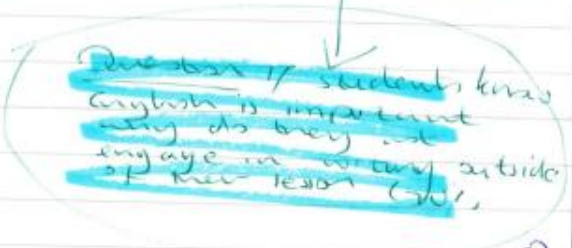 Question if students know
English is important
why do they not
engage in writing outside
of their lesson